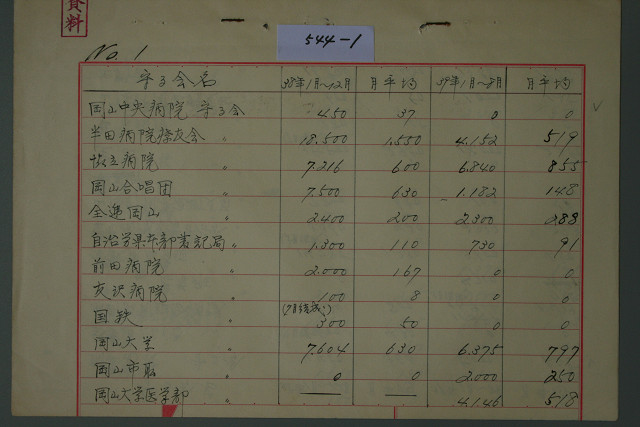 資料
544-1
No. 1
守る会名 38年1月〜12月 月平均 39年1月〜8月 月平均
岡山中央病院 守る会 450 37 0 0
半田病院療友会 〃 18.500 1.550 4.152 519
協立病院 〃 7.216 600 6.840 855
岡山合唱団 〃 7.500 630 1.182 148
全逓岡山 〃 2.400 200 2.300 288
自治労県本部書記局 〃 1.300 110 730 91
前田病院 〃 2.000 167 0 0
友沢病院 〃 100 8 0 0
国鉄 〃 (7月結成) 300 50 0 0
岡山大学 〃 7.604 630 6.375 797
岡山市職 〃 0 0 2.000 250
岡山大学医学部 〃 — — 4.146 518